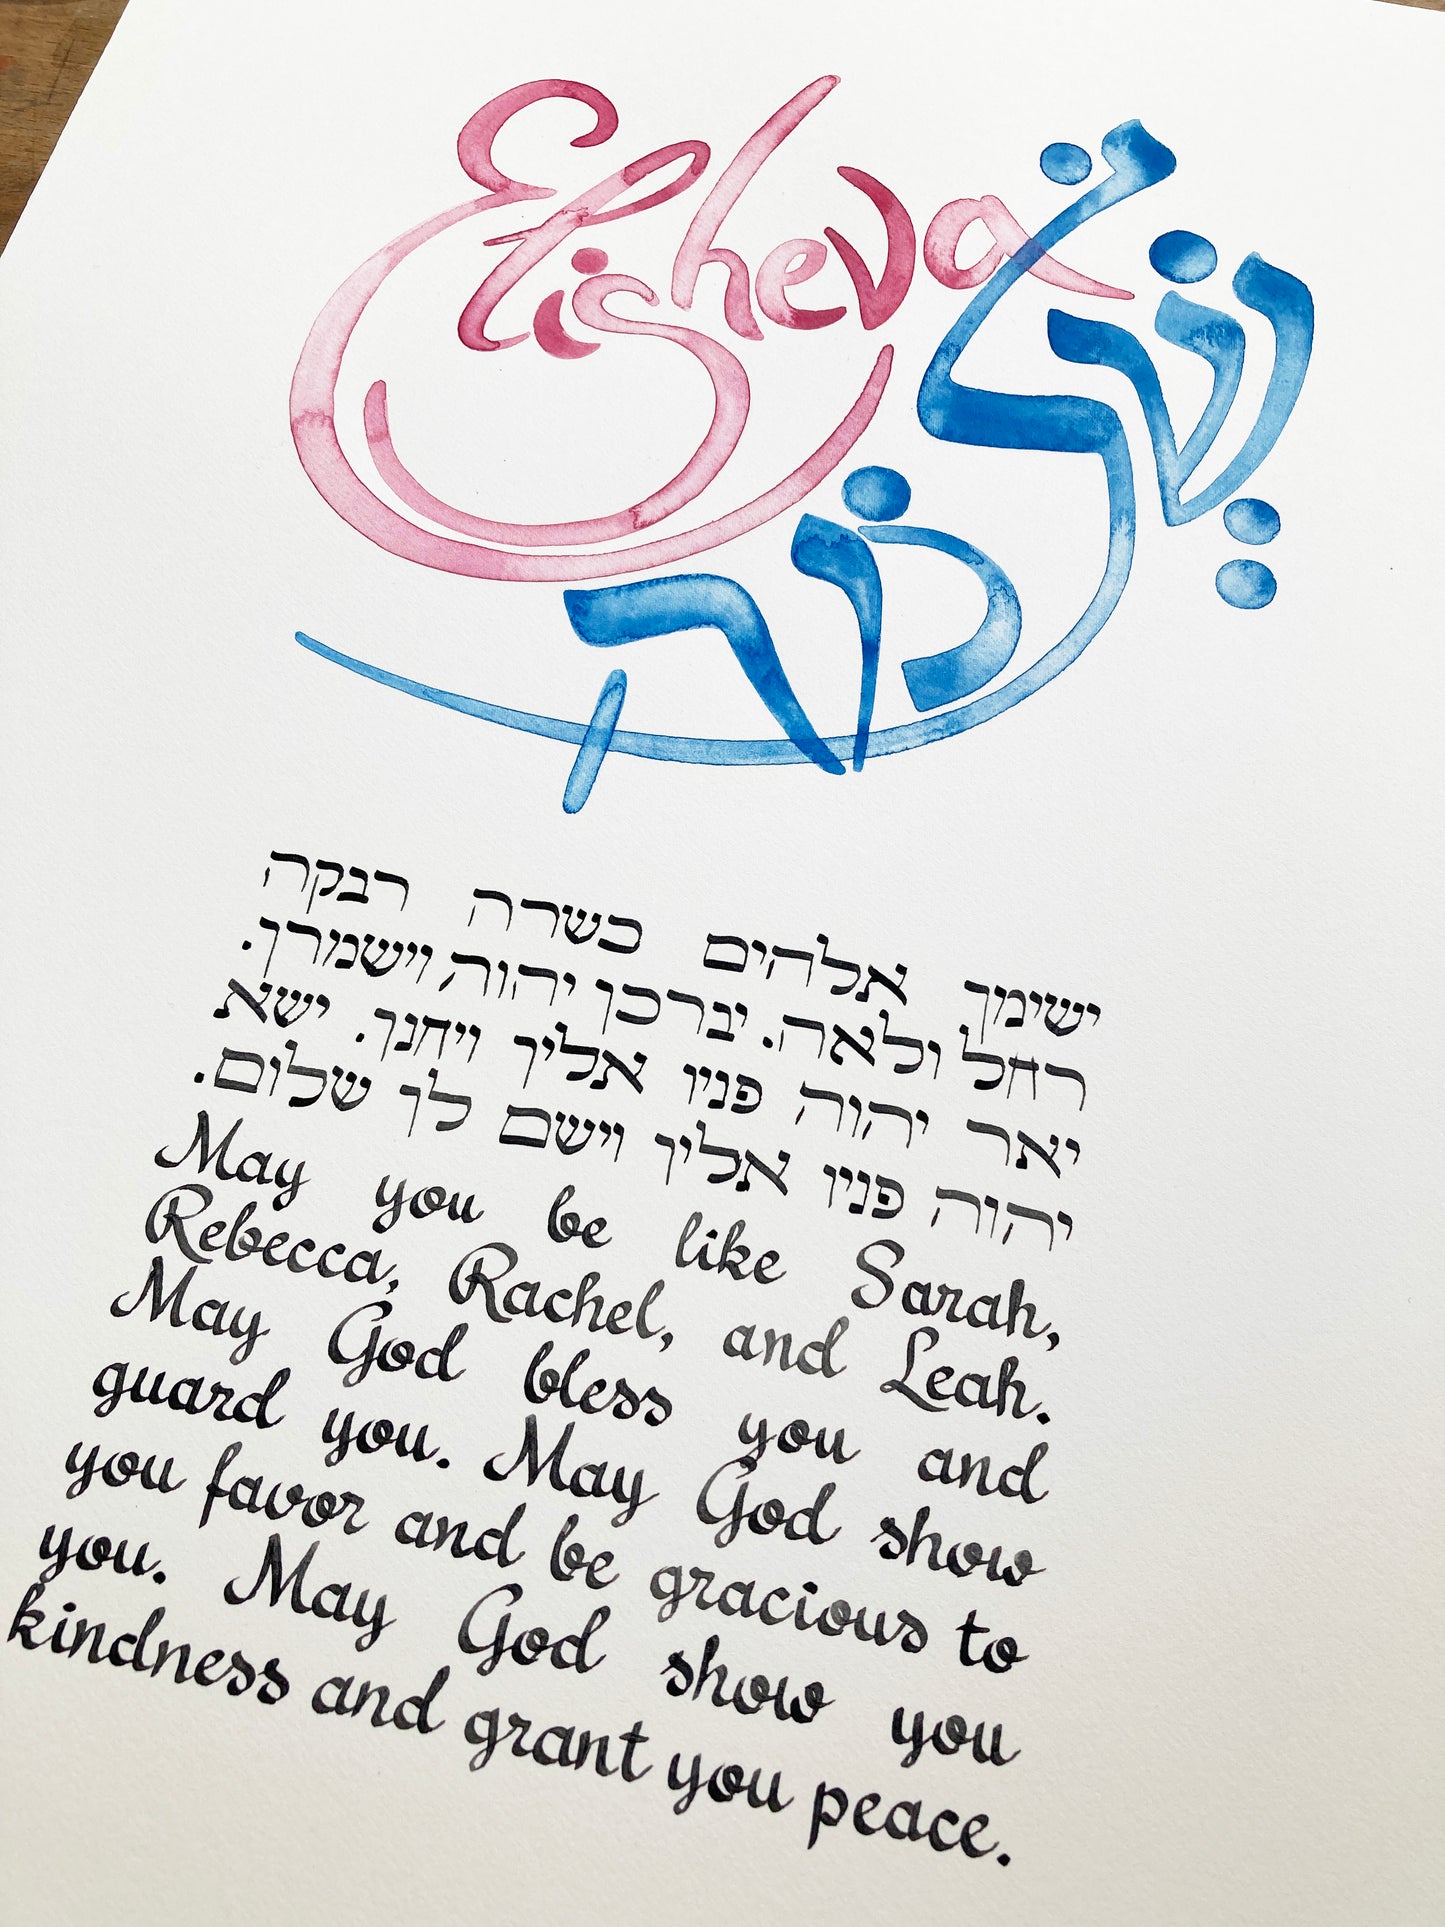 Elisheva
שְׁלֹמֹה
ישימך אלהים כשרה רבקה
רחל ולאה. יברכך יהוה וישמרך.
יאר יהוה פניו אליך ויחנך. ישא
יהוה פניו אליך וישם לך שלום.
May you be like Sarah,
Rebecca, Rachel, and Leah.
May God bless you and
guard you. May God show
you favor and be gracious to
you. May God show you
kindness and grant you peace.